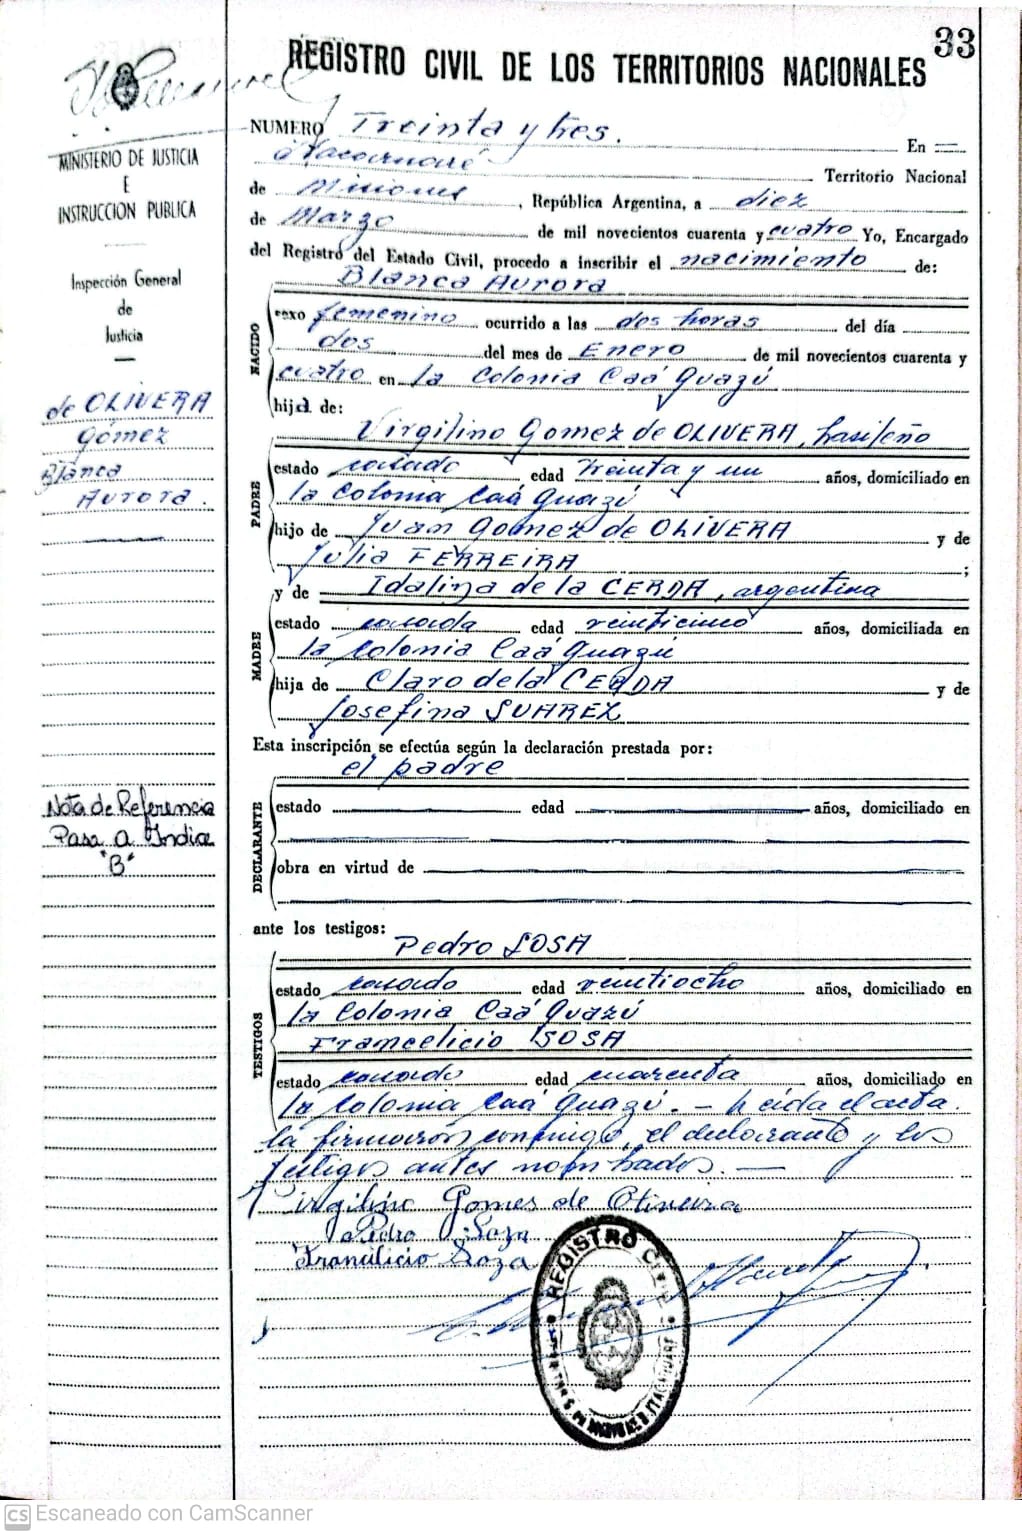 33
REGISTRO CIVIL DE LOS TERRITORIOS NACIONALES
MINISTERIO DE JUSTICIA
E
INSTRUCCION PUBLICA
Inspección General
de
Justicia
de OLIVERA
Gómez
Blanca
Aurora.
Nota de Referencia
Pasa a Indice
"B"
NUMERO Treinta y tres. En
Itacaruaré Territorio Nacional
de Misiones, República Argentina, a diez
de Marzo de mil novecientos cuarenta y cuatro Yo, Encargado
del Registro del Estado Civil, procedo a inscribir el nacimiento de:
Blanca Aurora
NACIDO
sexo femenino ocurrido a las dos horas del día
dos del mes de Enero de mil novecientos cuarenta y
cuatro en la Colonia Caá Guazú
hija de:
Virgilino Gomez de OLIVERA, brasileño
PADRE
estado casado edad treinta y un años, domiciliado en
la Colonia Caá Guazú
hijo de Juan Gomez de OLIVERA y de
Julia FERREIRA ;
y de Idalina de la CERDA, argentina
MADRE
estado casada edad veinticinco años, domiciliada en
la Colonia Caá Guazú
hija de Claro de la CERDA y de
Josefina SUAREZ
Esta inscripción se efectúa según la declaración prestada por:
el padre
DECLARANTE
estado edad años, domiciliado en
obra en virtud de
ante los testigos:
Pedro SOSA
TESTIGOS
estado casado edad veintiocho años, domiciliado en
la Colonia Caá Guazú
Francelicio SOSA
estado casado edad cuarenta años, domiciliado en
la Colonia Caá Guazú. - Leída el acta
la firmaron conmigo, el declarante y los
testigos antes nombrados. —
Virgilino Gomes de Oliveira
Pedro Soza
Francilicio Soza
REGISTRO CIVIL
CS Escaneado con CamScanner